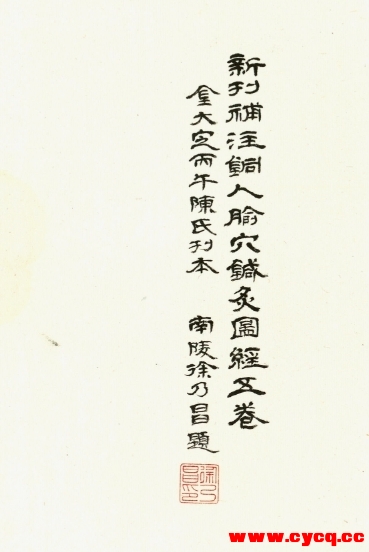 新刊補注銅人腧穴鍼灸圖經五卷
金大定丙午陳氏刊本 南陵徐乃昌題
徐乃昌印
www.cycq.cc